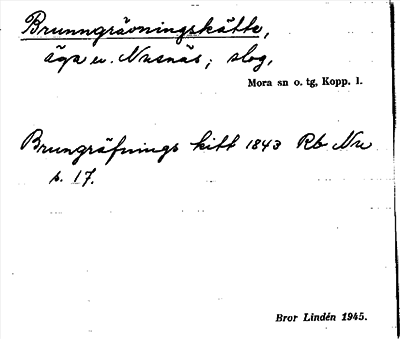 Brunngrävningskätte,
äga u. Nusnäs; slog,
Mora sn o. tg, Kopp. l.
Brungräfnings kitt 1843 Rb Nu
s. 17.
Bror Lindén 1945.